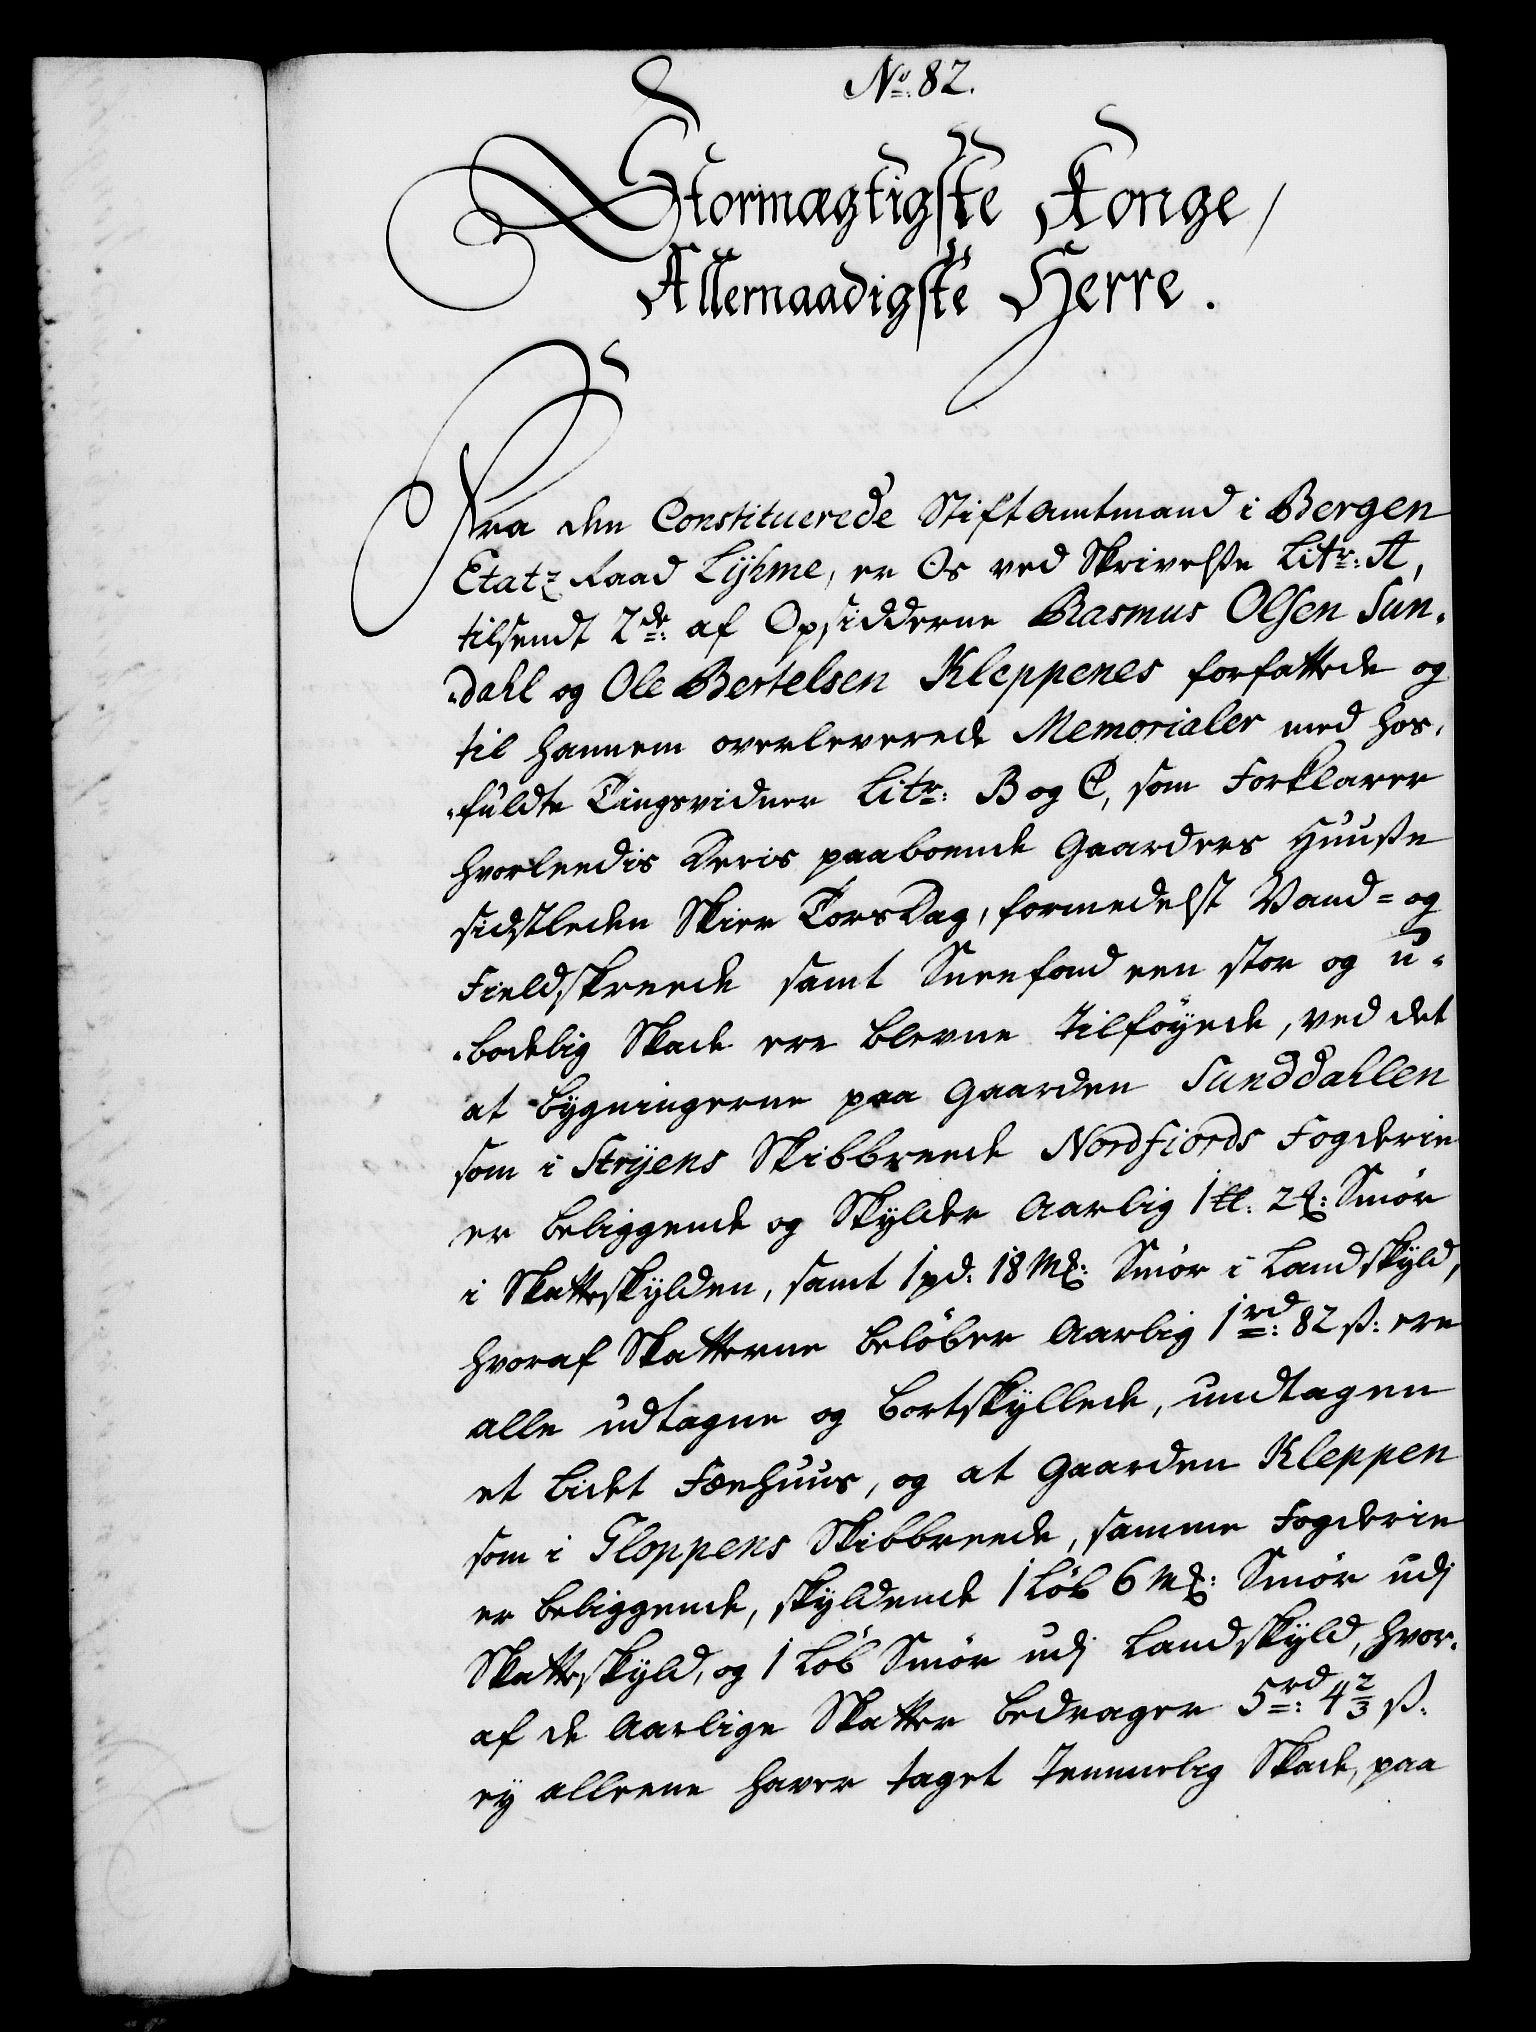 No. 82.
Stormægtigste Konge,
Allernaadigste Herre.
Fra den Constituerede Stiftamtmand i Bergen
Etatz Raad Lyhme, er Os ved Skrivelse Litr: A,
tilsendt 2de: af Opsidderne Rasmus Olsen Sun-
-dahl og Ole Bertelsen Kleppenes forfattede og
til hannem overleverede Memorialer med hos-
-fuldte Tingsvidner Litr: B og C, som Forklarer
hvorleedis Deris paaboende Gaarders Huuse
sidstleden Skier Torsdag, formedelst Vand- og
Field,skreede samt Sneefond een stor og u-
-bodelig Skade ere blevne tilføyede, ved det
at bygningerne paa Gaarden Sunddahlen
som i Stryens Skibbreede Nordfiords Fogderie
er beliggende og Skylder Aarlig 1 ll. 2 : Smør
i Skatteskylden, samt 1 pd: 18 Mk: Smør i Landskyld,
hvoraf Skatterne beløber Aarlig 1rd: 82 ß: ere
alle udtagne og bortskyllede, undtagen
et lidet Fæehuus, og at Gaarden Kleppen
som i Gloppens Skibbreede, samme Fogderie
er beliggende, skyldende 1 Løb 6 Mk: Smør udj
Skatteskyld, og 1 Løb Smør udj Landskyld, hvor-
af de Aarlige Skatter bedrager 5rd: 4 2/3 ß.
ey alleene haver taget temmelig Skade, paa